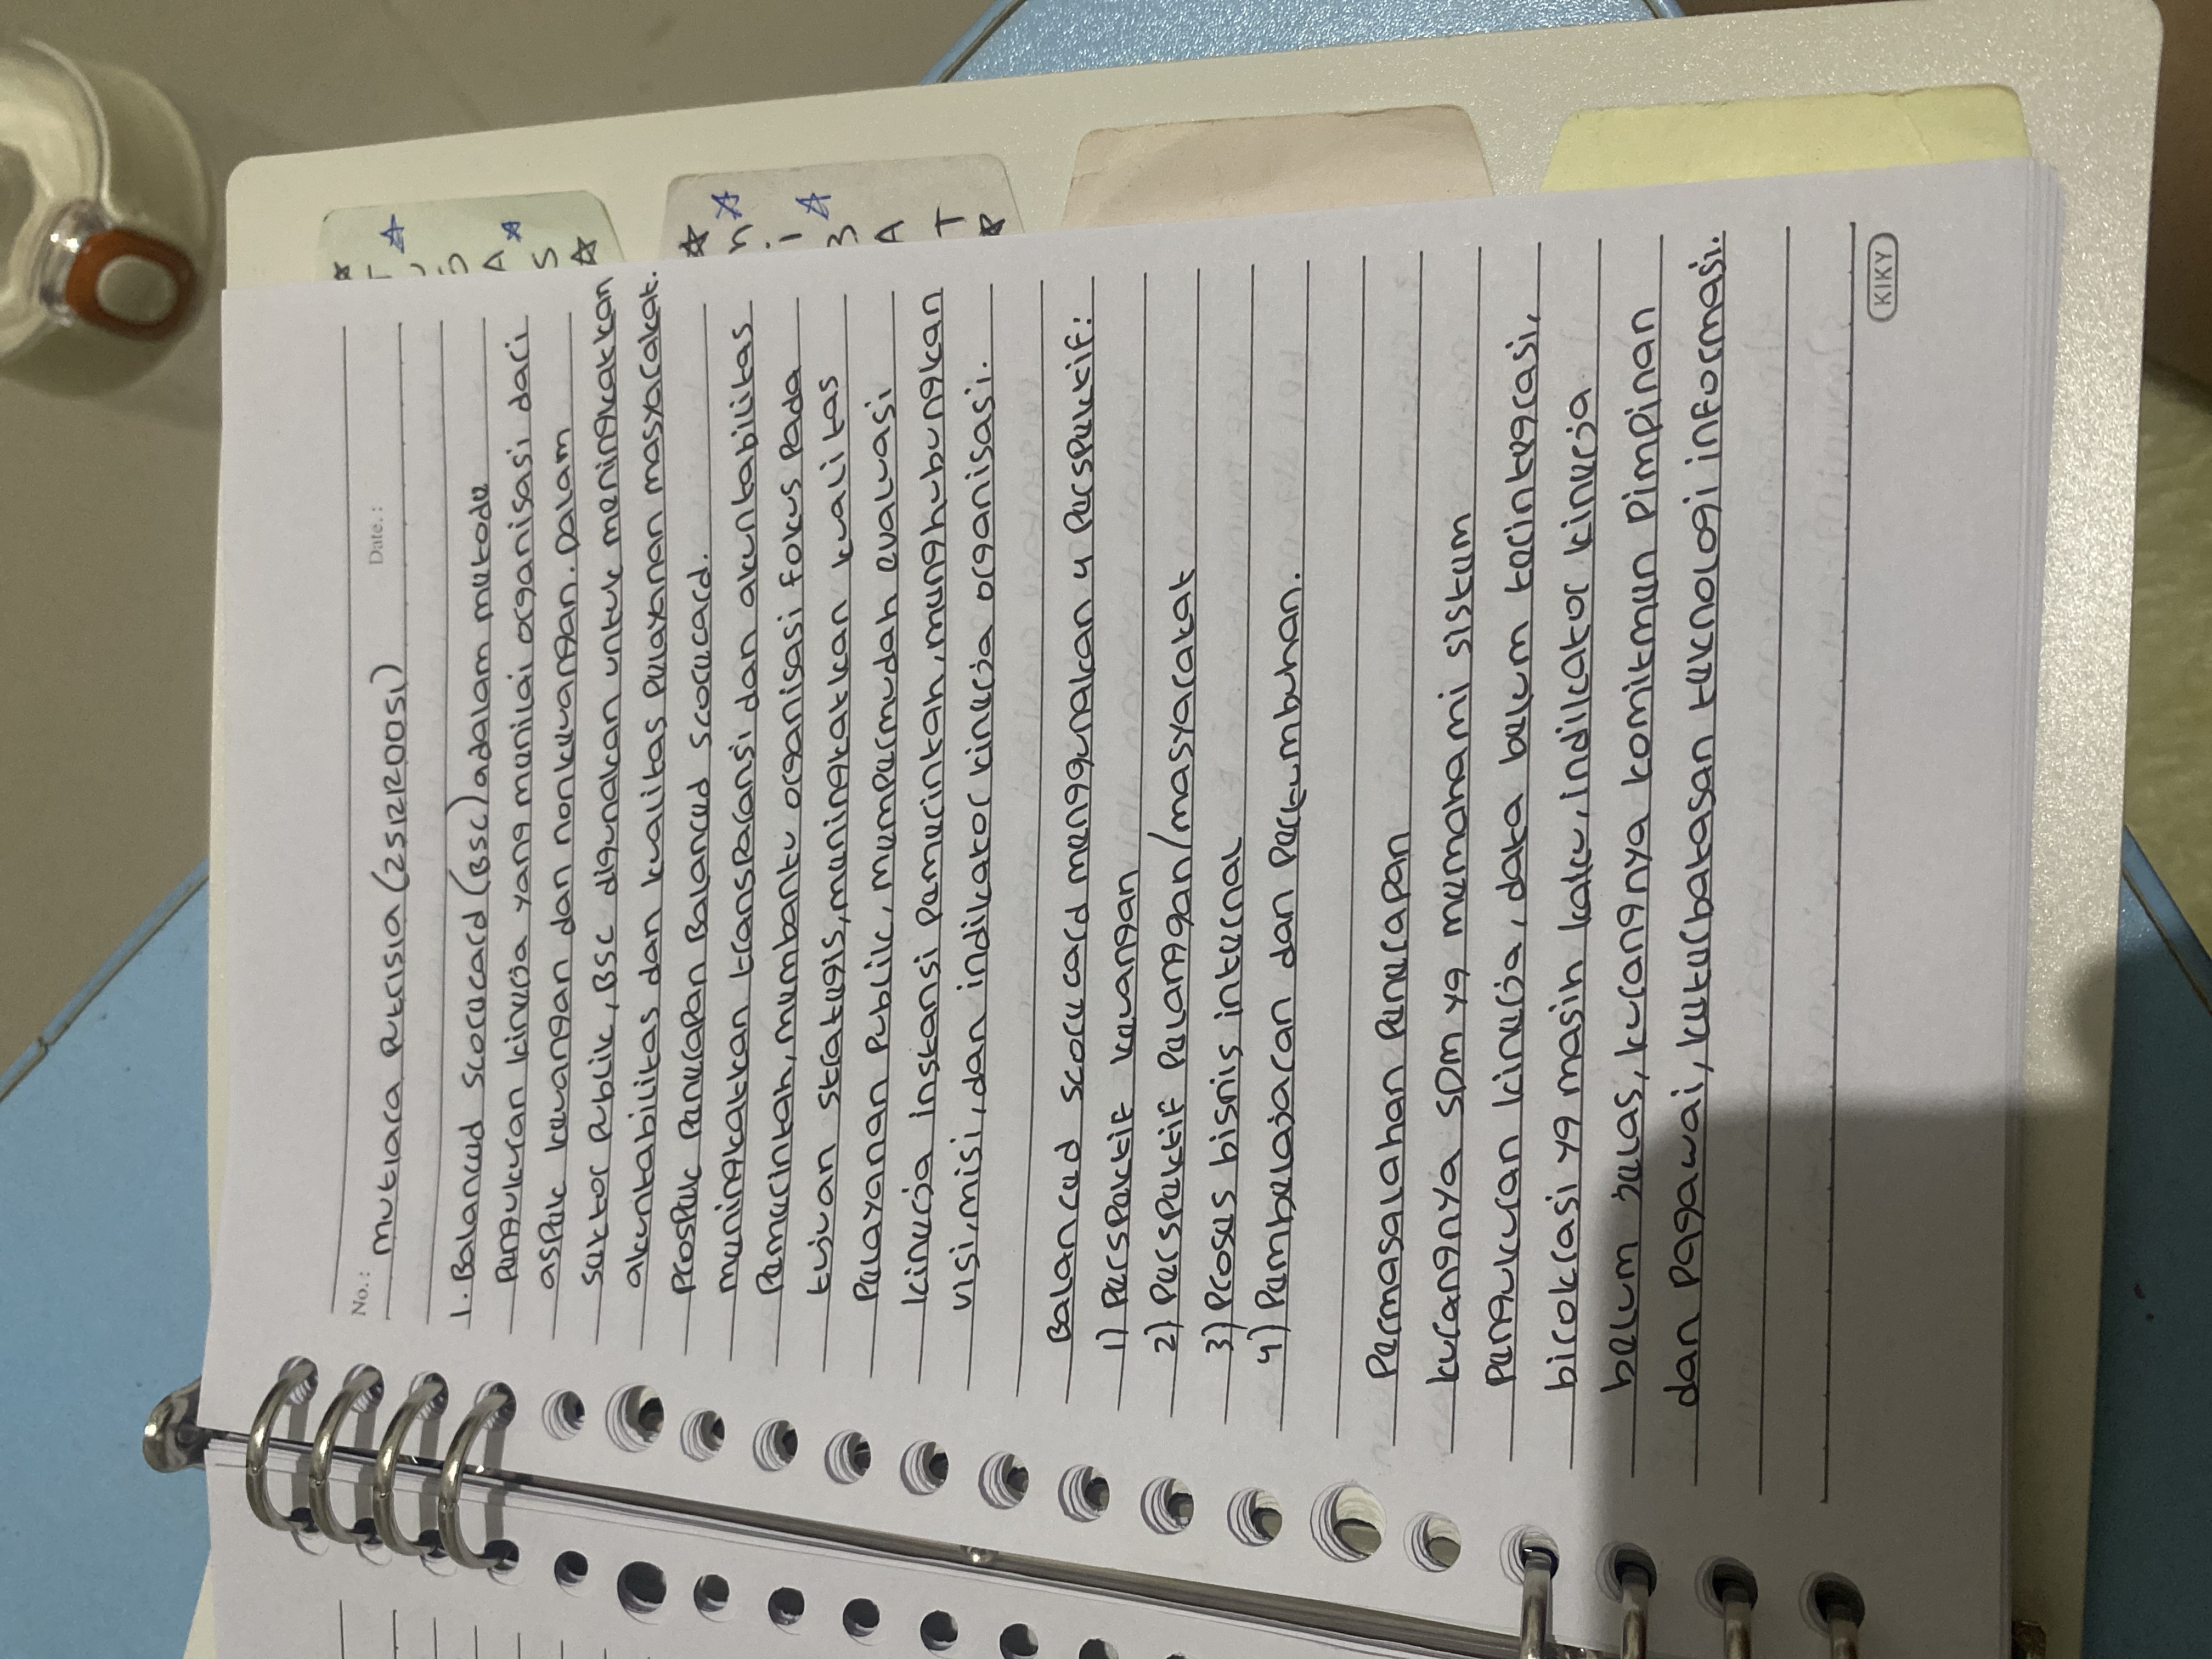 No.:
Date.:
Mutiara Putrisia (2512120051)
1. Balanced scorecard (BSC) adalam metode
Pengukuran kinerja yang menilai organisasi dari
aspek keuangan dan nonkeuangan. Dalam
sektor Publik, BSC digunakan untuk meningkatkan
akuntabilitas dan kualitas Pelayanan masyarakat.
Prospek Penerapan Balanced scorecard.
meningkatkan transparansi dan akuntabilitas
Pemerintah, membantu organisasi fokus Pada
tujuan strategis, meningkatkan kualitas
Pelayanan Publik, mempermudah evaluasi
kinerja instansi Pemerintah, menghubungkan
visi, misi, dan indikator kinerja organisasi.
Balanced scorecard menggunakan 4 Perspektif:
1) Perspektif keuangan
2) Perspektif Pelanggan/masyarakat
3) Proses bisnis internal
4) Pembelajaran dan Pertumbuhan.
Permasalahan Penerapan
kurangnya SDM yg memahami sistem
Pengukuran kinerja, data belum terintegrasi,
birokrasi yg masih kaku, indikator kinerja
belum jelas, kurangnya komitmen Pimpinan
dan Pegawai, keterbatasan teknologi informasi.
KIKY
T
U
G
A
S
A
T